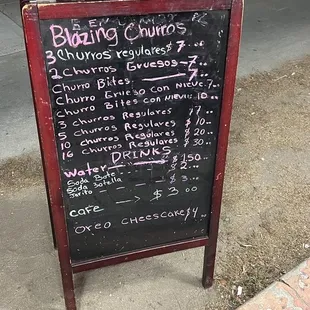 Blazing Churros
3 Churros regulares $ 7.00
2 Churros Gruesos — 7.00
Churro Bites — 7.00
Churro Grueso con Nieve 7.00
Churro Bites con nieve 10.00
3 Churros Regulares $ 7.00
5 Churros Regulares $ 10.00
10 churros Regulares $ 20.00
16 Churros Regulares $ 30.00
DRINKS
Water — $ 1.50
Soda Bote — $ 2.00
Soda Botella — $ 3.00
Jarrito
cafe —> $ 3.00
Oreo cheescake $ 4.00